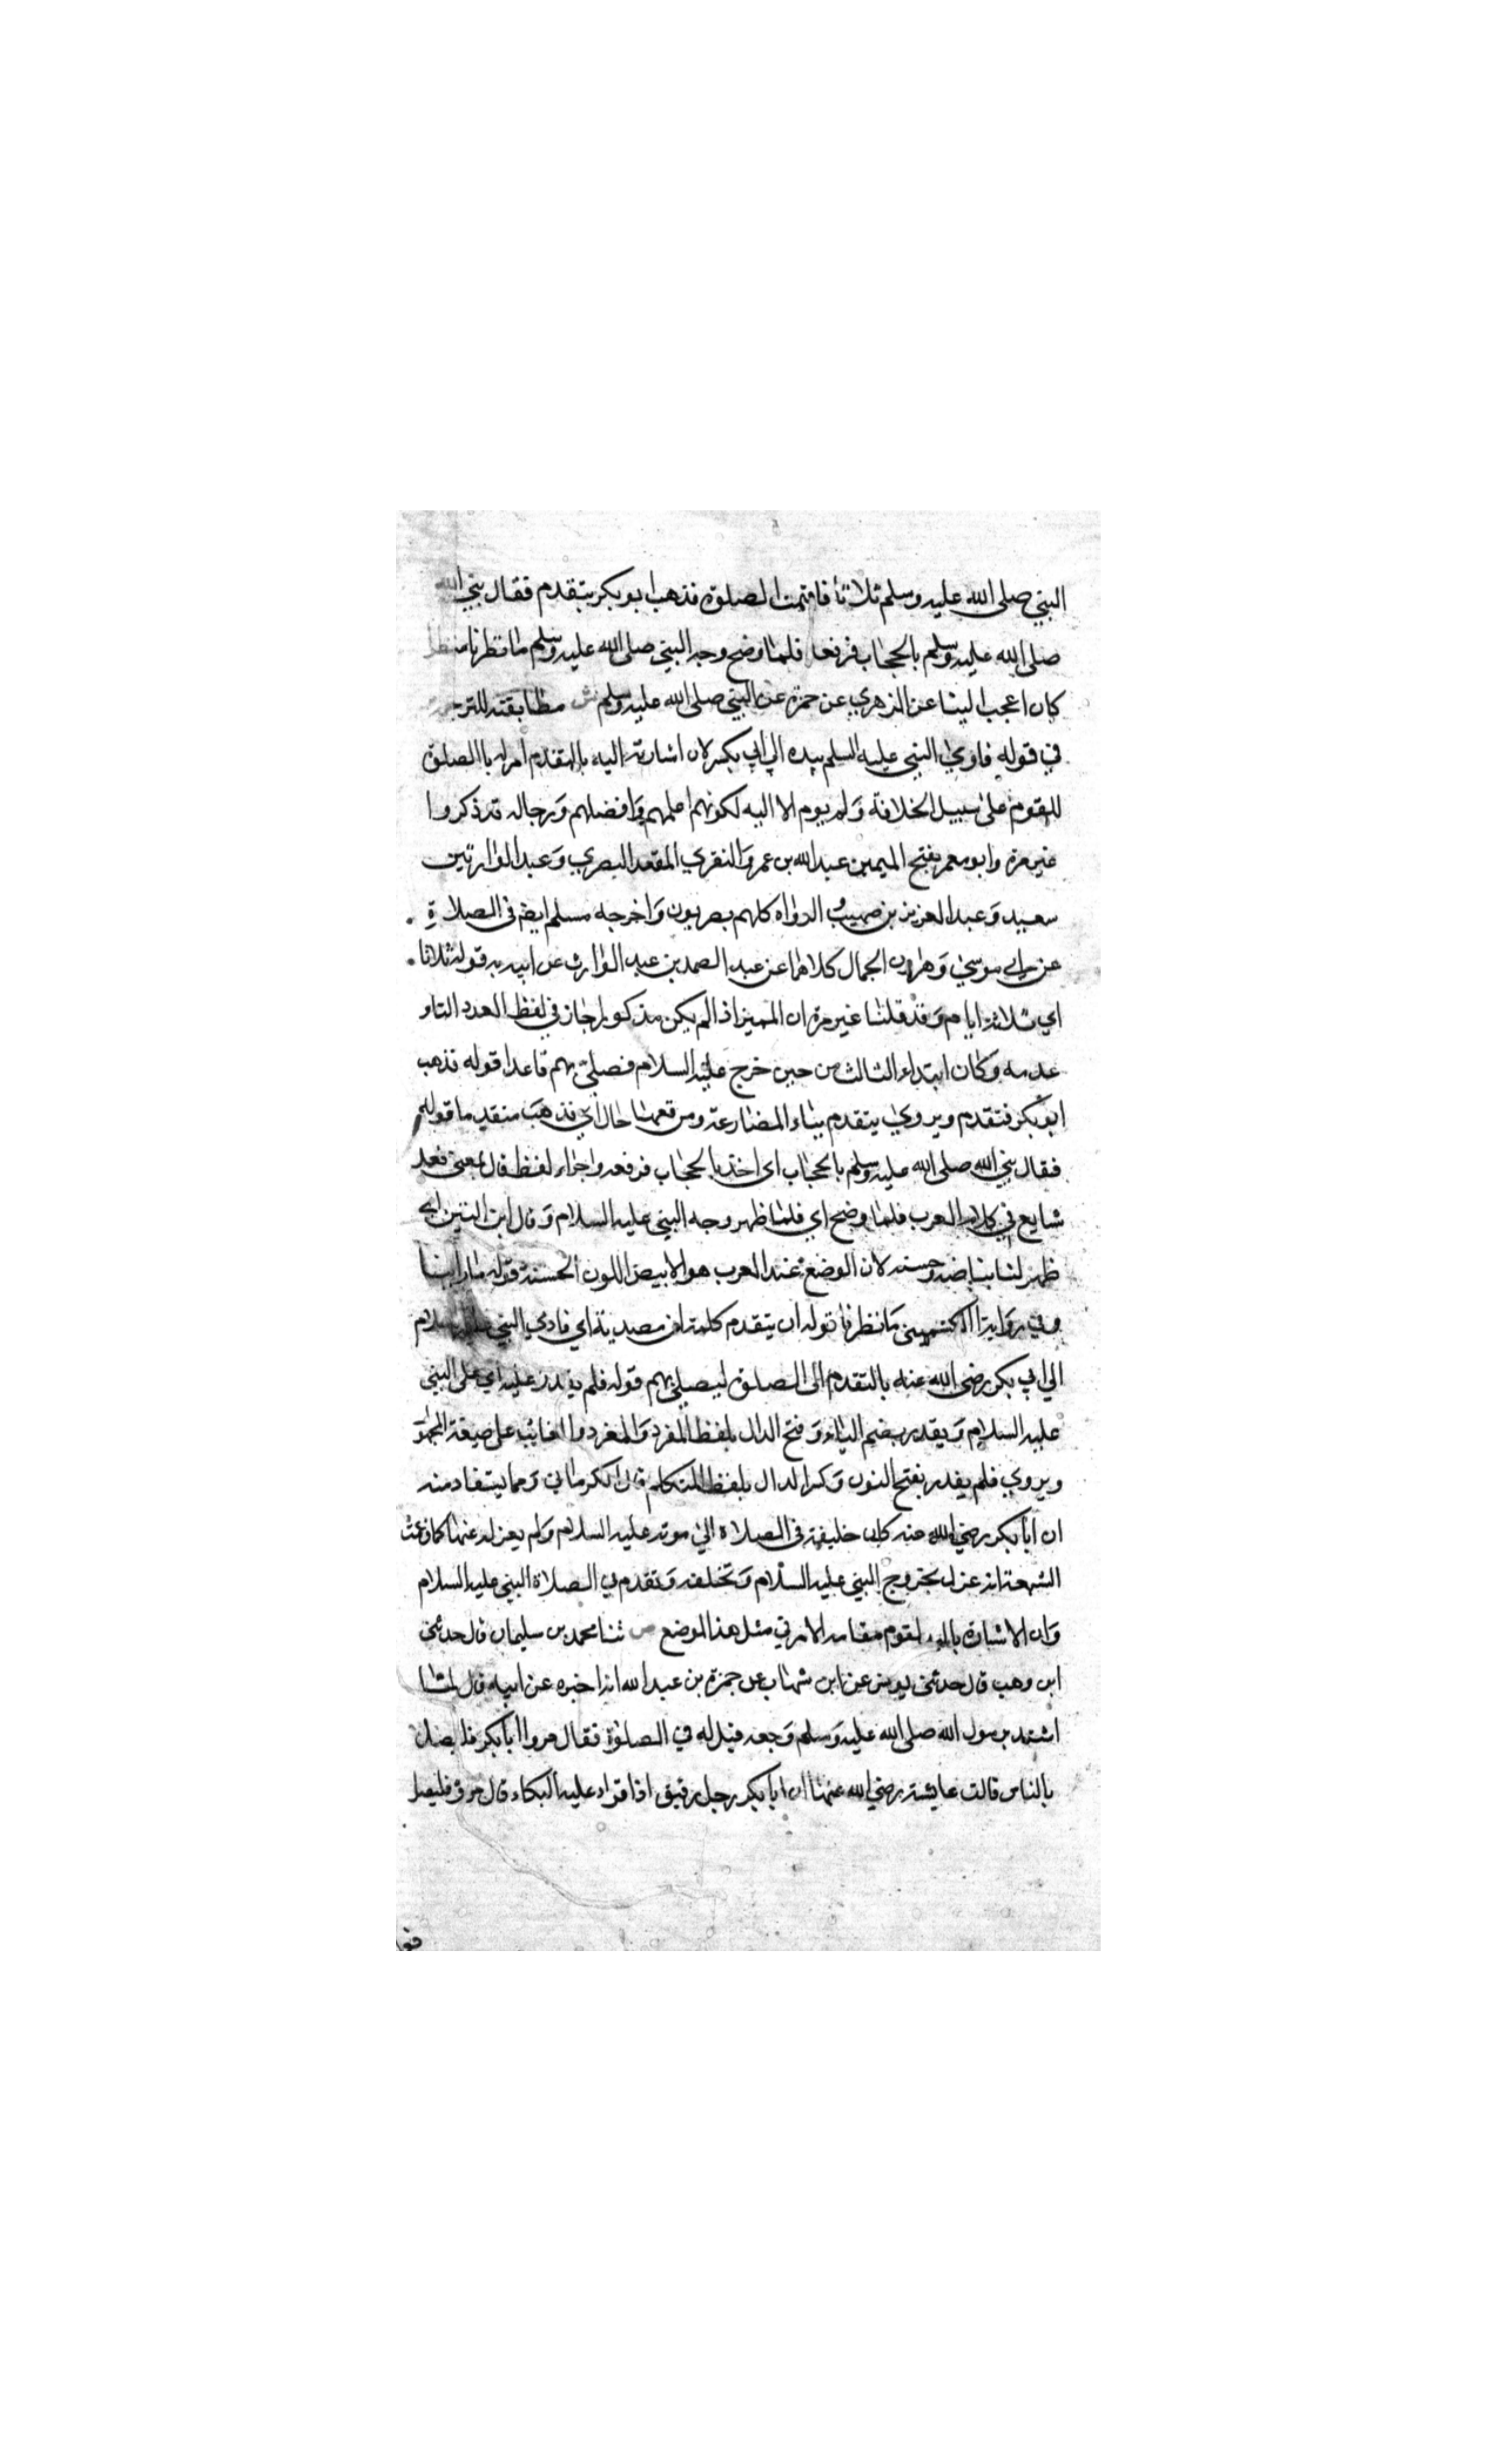 النبي صلى الله عليه وسلم ثلاثا فاقيمت الصلوة فذهب ابو بكر يتقدم فقال نبي الله
صلى الله عليه وسلم بالحجاب فرفعه فلما وضح وجه النبي صلى الله عليه وسلم ما نظرنا منظرا
كان اعجب الينا عن الزهري عن حمزة عن النبي صلى الله عليه وسلم ش مطابقته للترجمة
في قوله فاومى النبي عليه السلم بيده الى ابي بكر لان اشارته اليه بالتقدم امر له بالصلوة
للقوم على سبيل الخلافة ولم يوم الا اليه لكونه اعلمهم وافضلهم ورجاله قد ذكروا
غير مرة وابو معمر بفتح الميمين عبد الله بن عمرو المنقري المقعد البصري وعبد الوارث بن
سعيد وعبد العزيز بن صهيب الرواه كلهم بصريون واخرجه مسلم ايضا في الصلاة
عن ابي موسى وهارون الجمال كلاهما عن عبد الصمد بن عبد الوارث عن ابيه به قوله ثلاثا
اي ثلاثة ايام وقد قلنا غير مرة ان المميز اذا لم يكن مذكورا جاز في لفظ العدد التاو
عدمه وكان ابتداء الثالث من حين خرج عليه السلام فصلى بهم قاعدا قوله فذهب
ابو بكر فتقدم ويروى يتقدم بياء المضارعة وموقعها حال اي فذهب متقدما قوله
فقال نبي الله صلى الله عليه وسلم بالحجاب اي اخذ بالحجاب فرفعه واجراء لفظ قال بمعنى فعل
شايع في كلام العرب فلما وضح اي فلما ظهر وجه النبي عليه السلام وقال ابن التين اي
ظهر لنا بياضه وحسنه لان الوضح عند العرب هو الابيض اللون الحسنه قوله ما راينا
وفي رواية الكشميهني ما نظرنا قوله ان يتقدم كلمة ان مصدرية اي فاومى النبي عليه السلام
الى ابي بكر رضي الله عنه بالتقدم الى الصلوة ليصلي بهم قوله فلم يقدر عليه اي على النبي
عليه السلام ويقدر بضم الياء وفتح الدال بلفظ المفرد والمفرد الغائب على صيغة المجهول
ويروى فلم يقدر بفتح النون وكسر الدال بلفظ المتكلم قال الكرماني ومما يستفاد منه
ان ابا بكر رضي الله عنه كان خليفة في الصلاة الى موته عليه السلام ولم يعزله عنها كما زعمت
الشيعة انه عزل بخروج النبي عليه السلام وتخلفه وتقدم في الصلاة النبي عليه السلام
وان الاشارة باليد لتقوم مقام الامر في مثل هذا الموضع ص ثنا محمد بن سليمان قال حدثني
ابن وهب قال حدثني يونس عن ابن شهاب عن حمزة بن عبد الله انه اخبره عن ابيه قال لما
اشتد برسول الله صلى الله عليه وسلم وجعه قيل له في الصلوة فقال مروا ابا بكر فليصل
بالناس قالت عايشة رضي الله عنها ان ابا بكر رجل رقيق اذا قراء عليه البكاء قال مروه فليصل